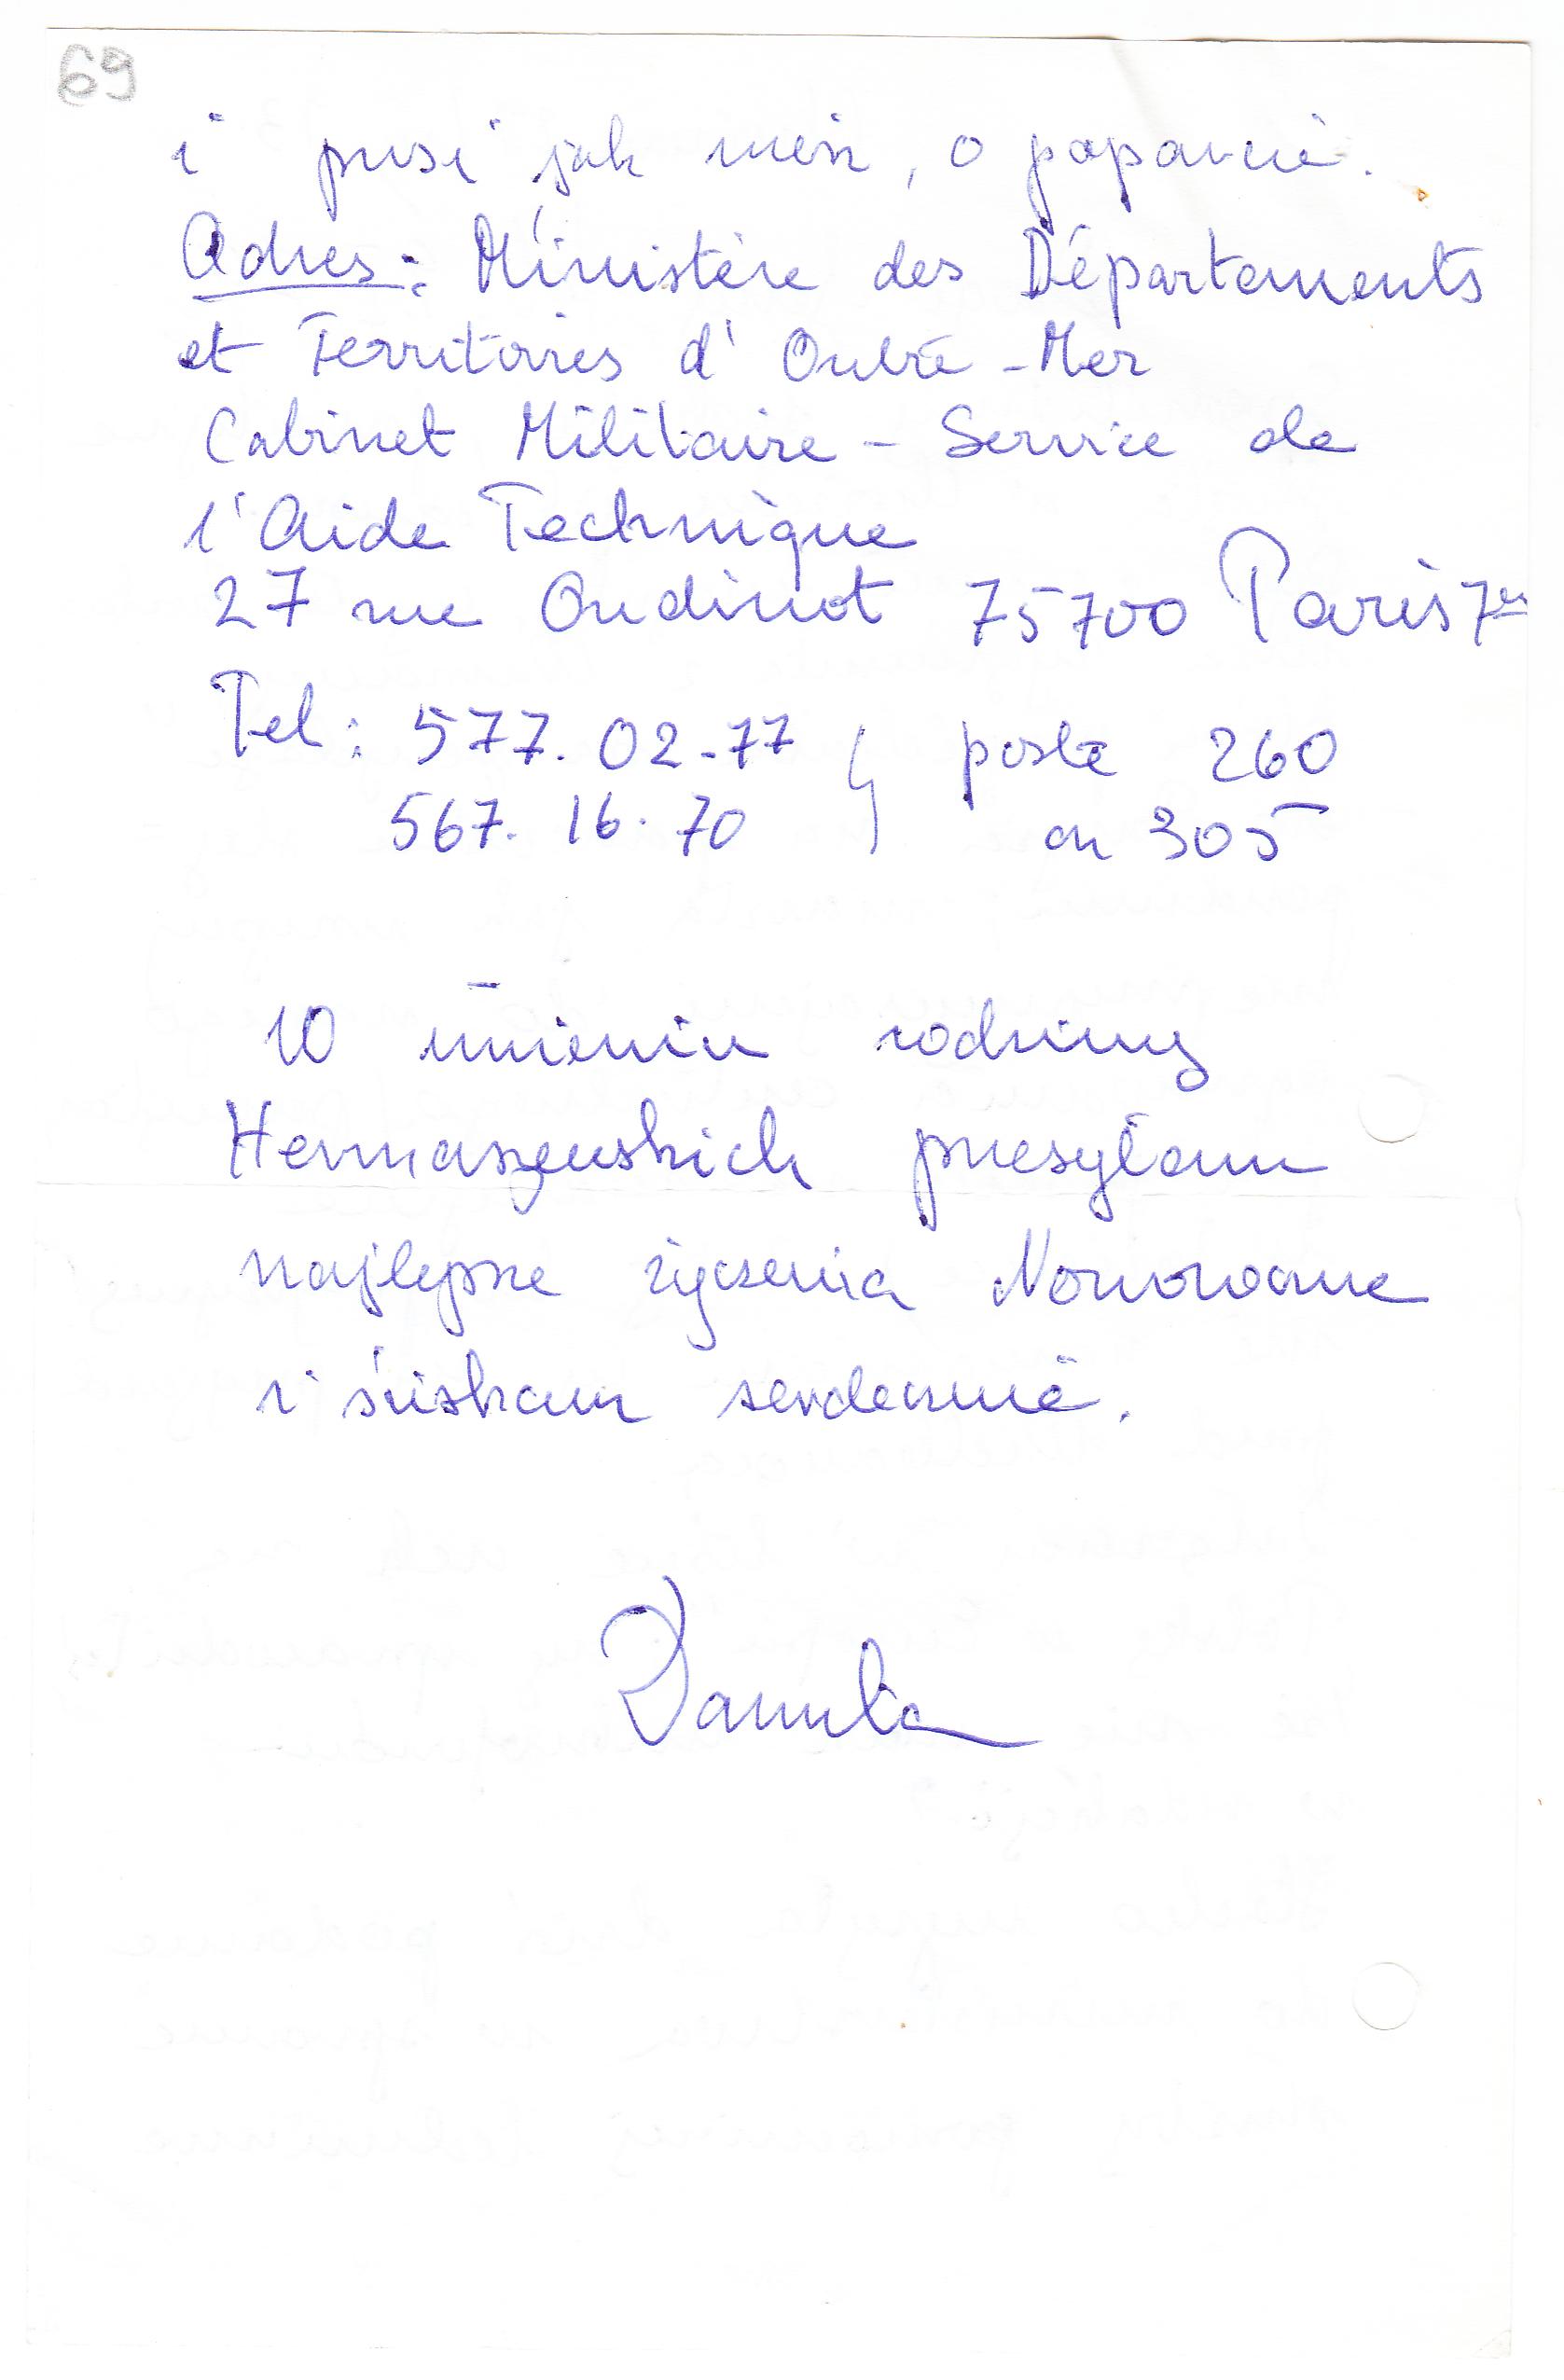 69
i prosi jak wiesz, o poparcie.
Adres: Ministère des Départements
et Territoires d'Outre-Mer
Cabinet Militaire - Service de
l'Aide Technique
27 rue Oudinot 75700 Paris 7em
Tel: 577.02-77 } poste 260
567.16.70 ou 305
W imieniu rodziny
Hermaszewskich przesyłam
najlepsze życzenia Noworoczne
i ściskam serdecznie.
Danuta